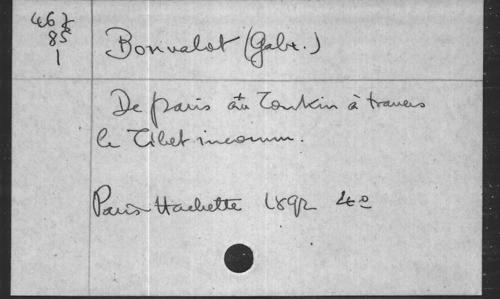 467
85
1
Bonvalot (Gabr.)
De Paris au Tonkin à travers
le Tibet inconnu.
Paris Hachette 1892 4º